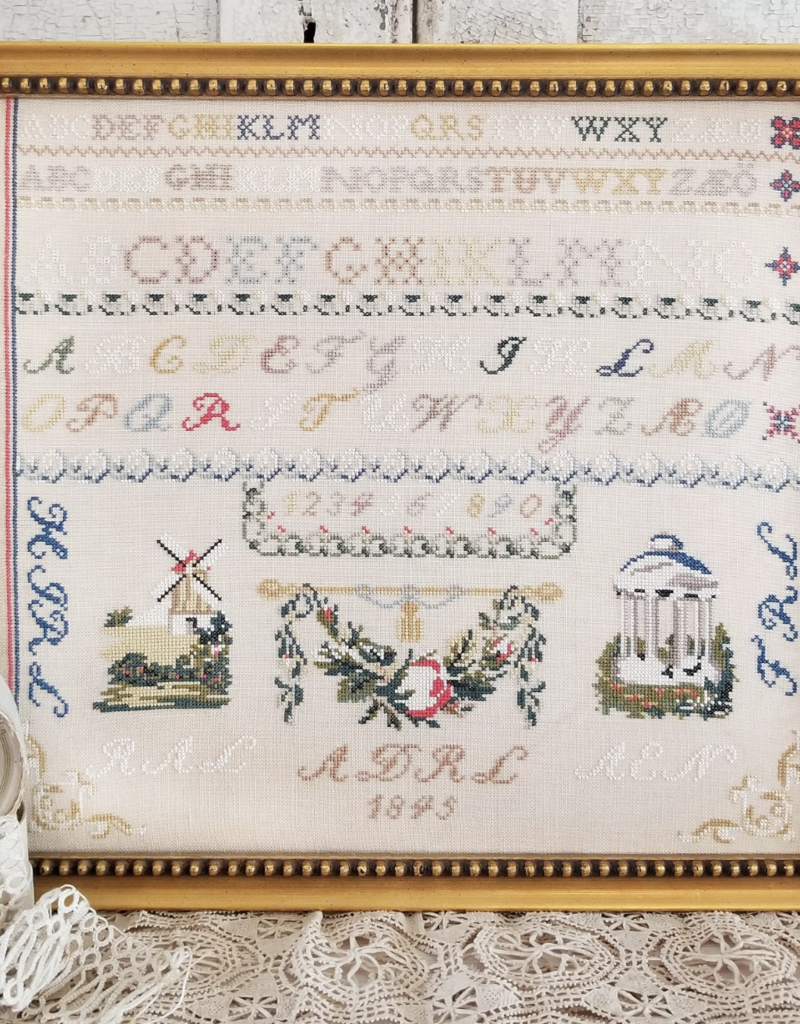 ABCDEFGHIKLM NOPQRS WXY
ABC DEF GHI KLM NOPQRSTUVWXYZÆÖ
ABCDEFGHIKLMNO
ABCDEFGHIKLMN
OPQRSTUWXYZÆØ
1234567890
HIRL
TRL
RAL ADRL AEN
1845